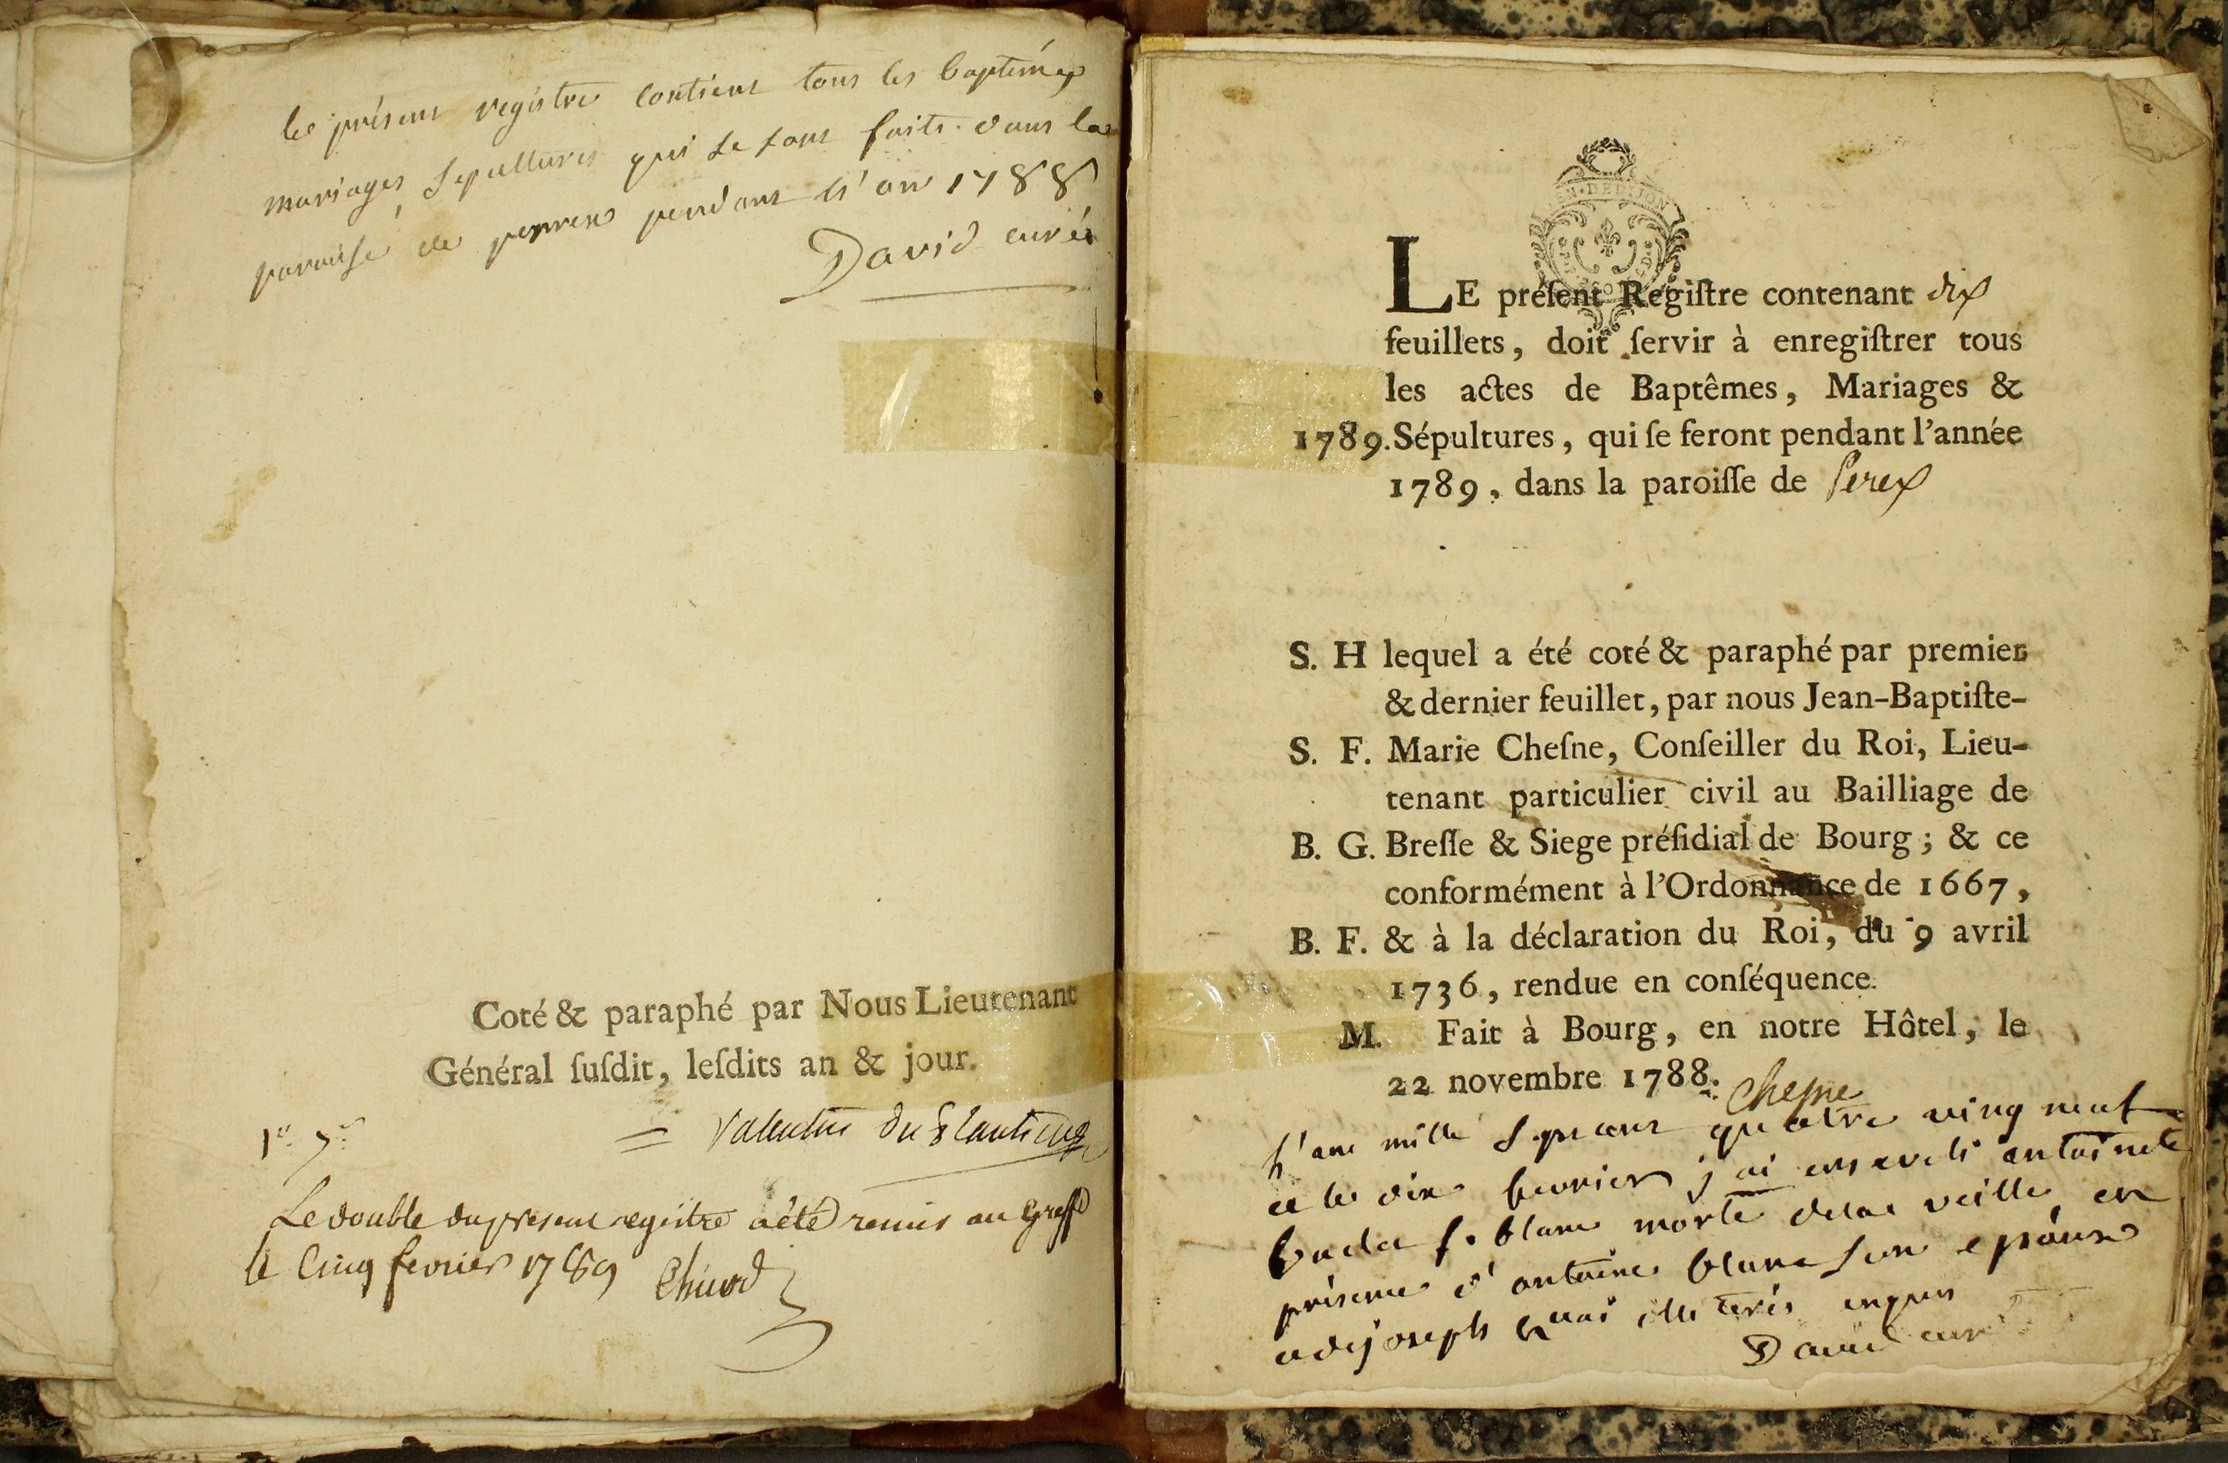 le présent registre contient tous les baptêmes
mariages, sepultures qui se sont faits dans la
paroisse de perrex pendant l'an 1788
David curé
Coté & paraphé par Nous Lieutenant
Général ſuſdit, leſdits an & jour.
Le double du present registre a été remis au Greffe
le Cinq fevrier 1789
LE préſent Regiſtre contenant dix
feuillets, doit ſervir à enregiſtrer tous
les actes de Baptêmes, Mariages &
1789. Sépultures, qui ſe feront pendant l'année
1789, dans la paroiſſe de Perex
S. H lequel a été coté & paraphé par premier
& dernier feuillet, par nous Jean-Baptiſte-
S. F. Marie Cheſne, Conſeiller du Roi, Lieu-
tenant particulier civil au Bailliage de
B. G. Breſſe & Siege préſidial de Bourg ; & ce
conformément à l'Ordonnance de 1667,
B. F. & à la déclaration du Roi, du 9 avril
1736, rendue en conſéquence.
M. Fait à Bourg, en notre Hôtel, le
22 novembre 1788.
Chesne
l'an mille sept cent quatre ving neuf
et le dix fevrier j'ai enseveli antoinete
f. blanc morte de la veille en
présence d'antoine blanc son epoux
joseph enquis
David curé